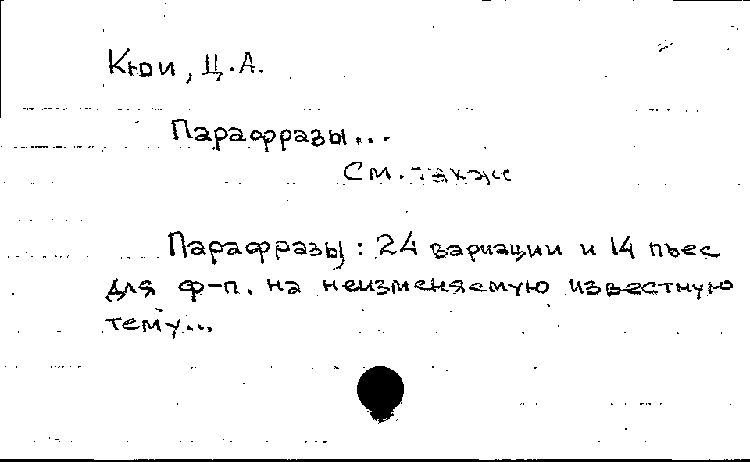 Кюи, Ц.А.
Парафразы...
См. также
Парафразы: 24 вариации и 14 пьес
для ф-п. на неизменяемую известную
тему...